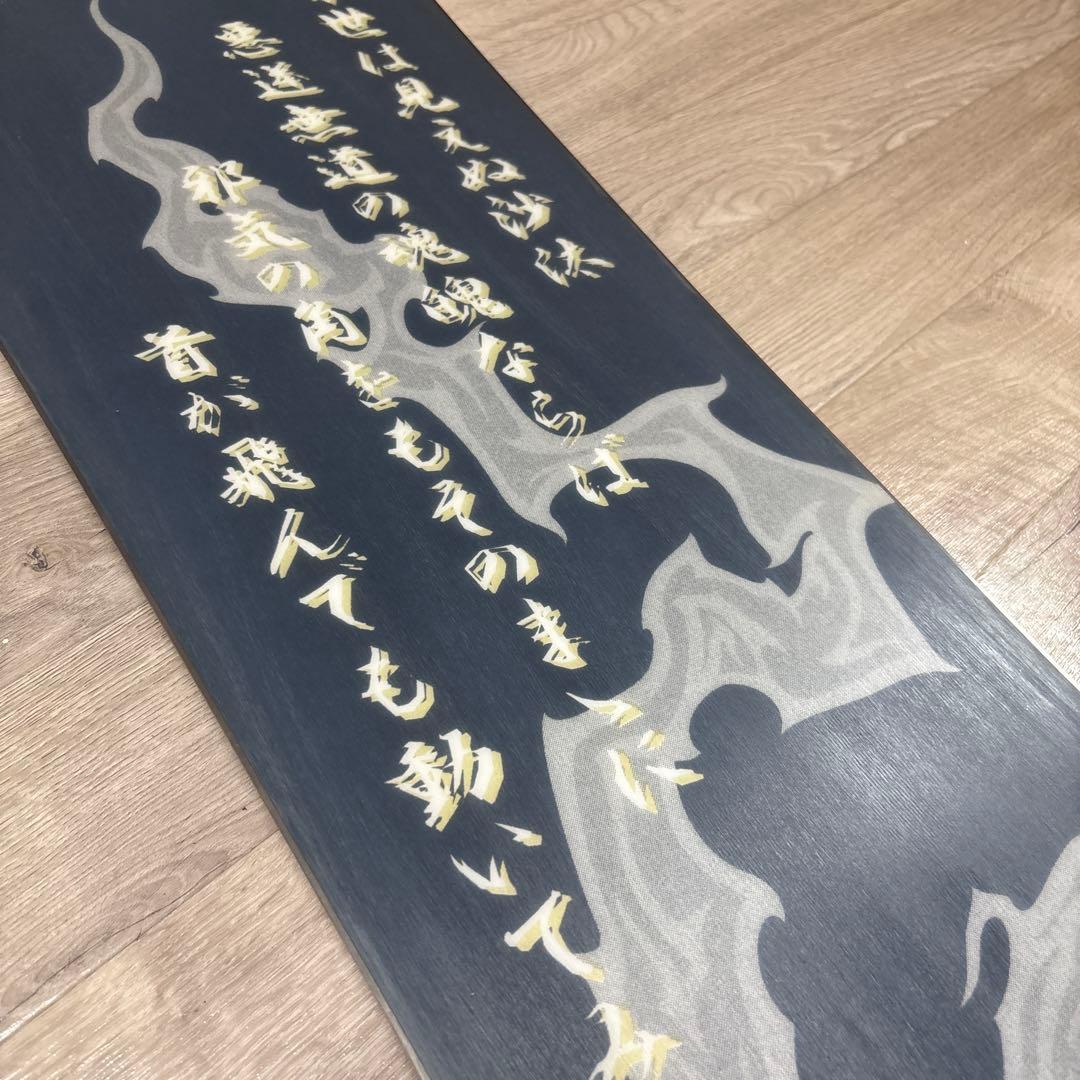 世は見えぬ沙汰
悪逆無道の魂魄ならば
邪気の角をもそのままに
首が飛んでも動いてみ